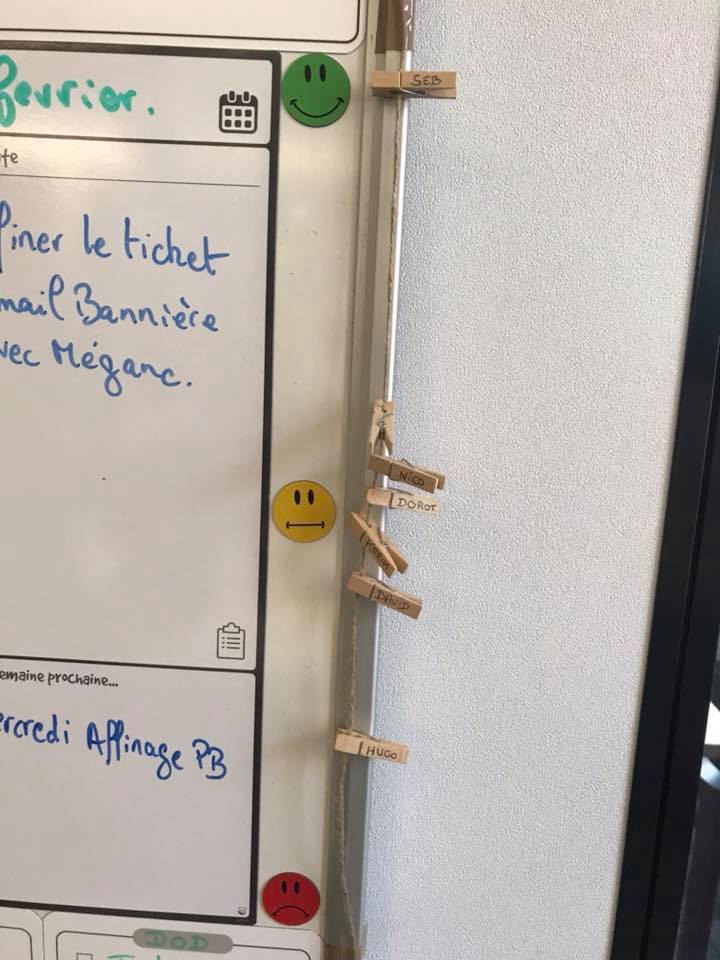 fevrier.
finer le ticket
mail Bannière
vec Mégane.
emaine prochaine...
ercredi Affinage PB
DOD
SEB
NICO
DOROT
DAVID
HUGO